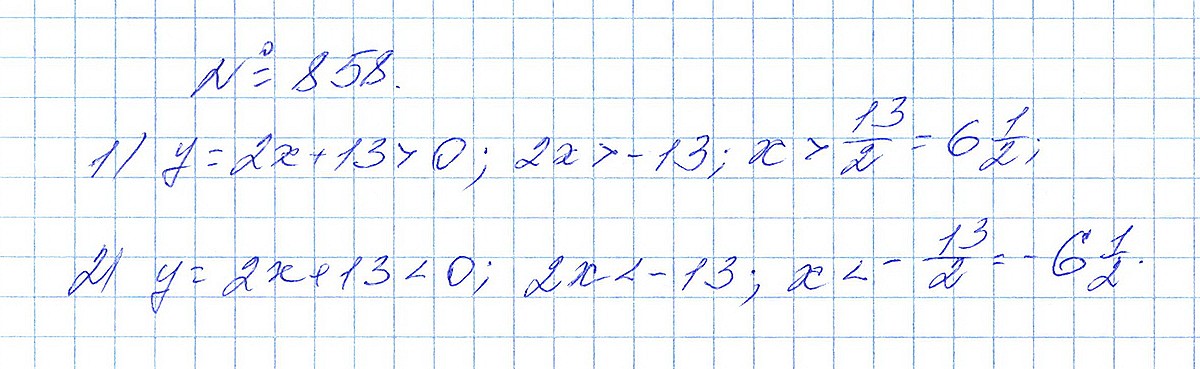 № 858.
1) y = 2x + 13 > 0; 2x > -13; x > 13/2 = 6 1/2;
2) y = 2x + 13 < 0; 2x < -13; x < - 13/2 = - 6 1/2.